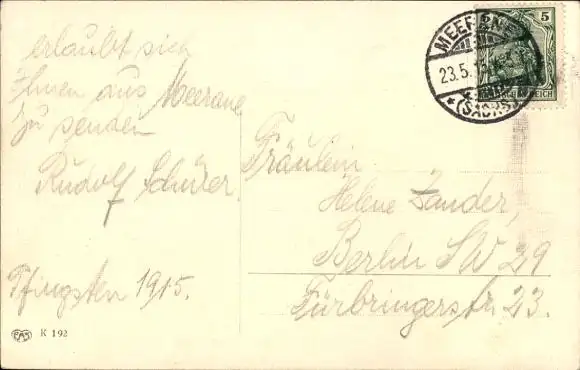 erlaubt sich
Ihnen aus Meerane
zu senden
Rudolf Schürer.
Pfingsten 1915.
K 192
5
MEERANE
23.5.
* (SACHS.
REICH
Fräulein
Helene Zander,
Berlin SW 29
Fürbringerstr. 23.